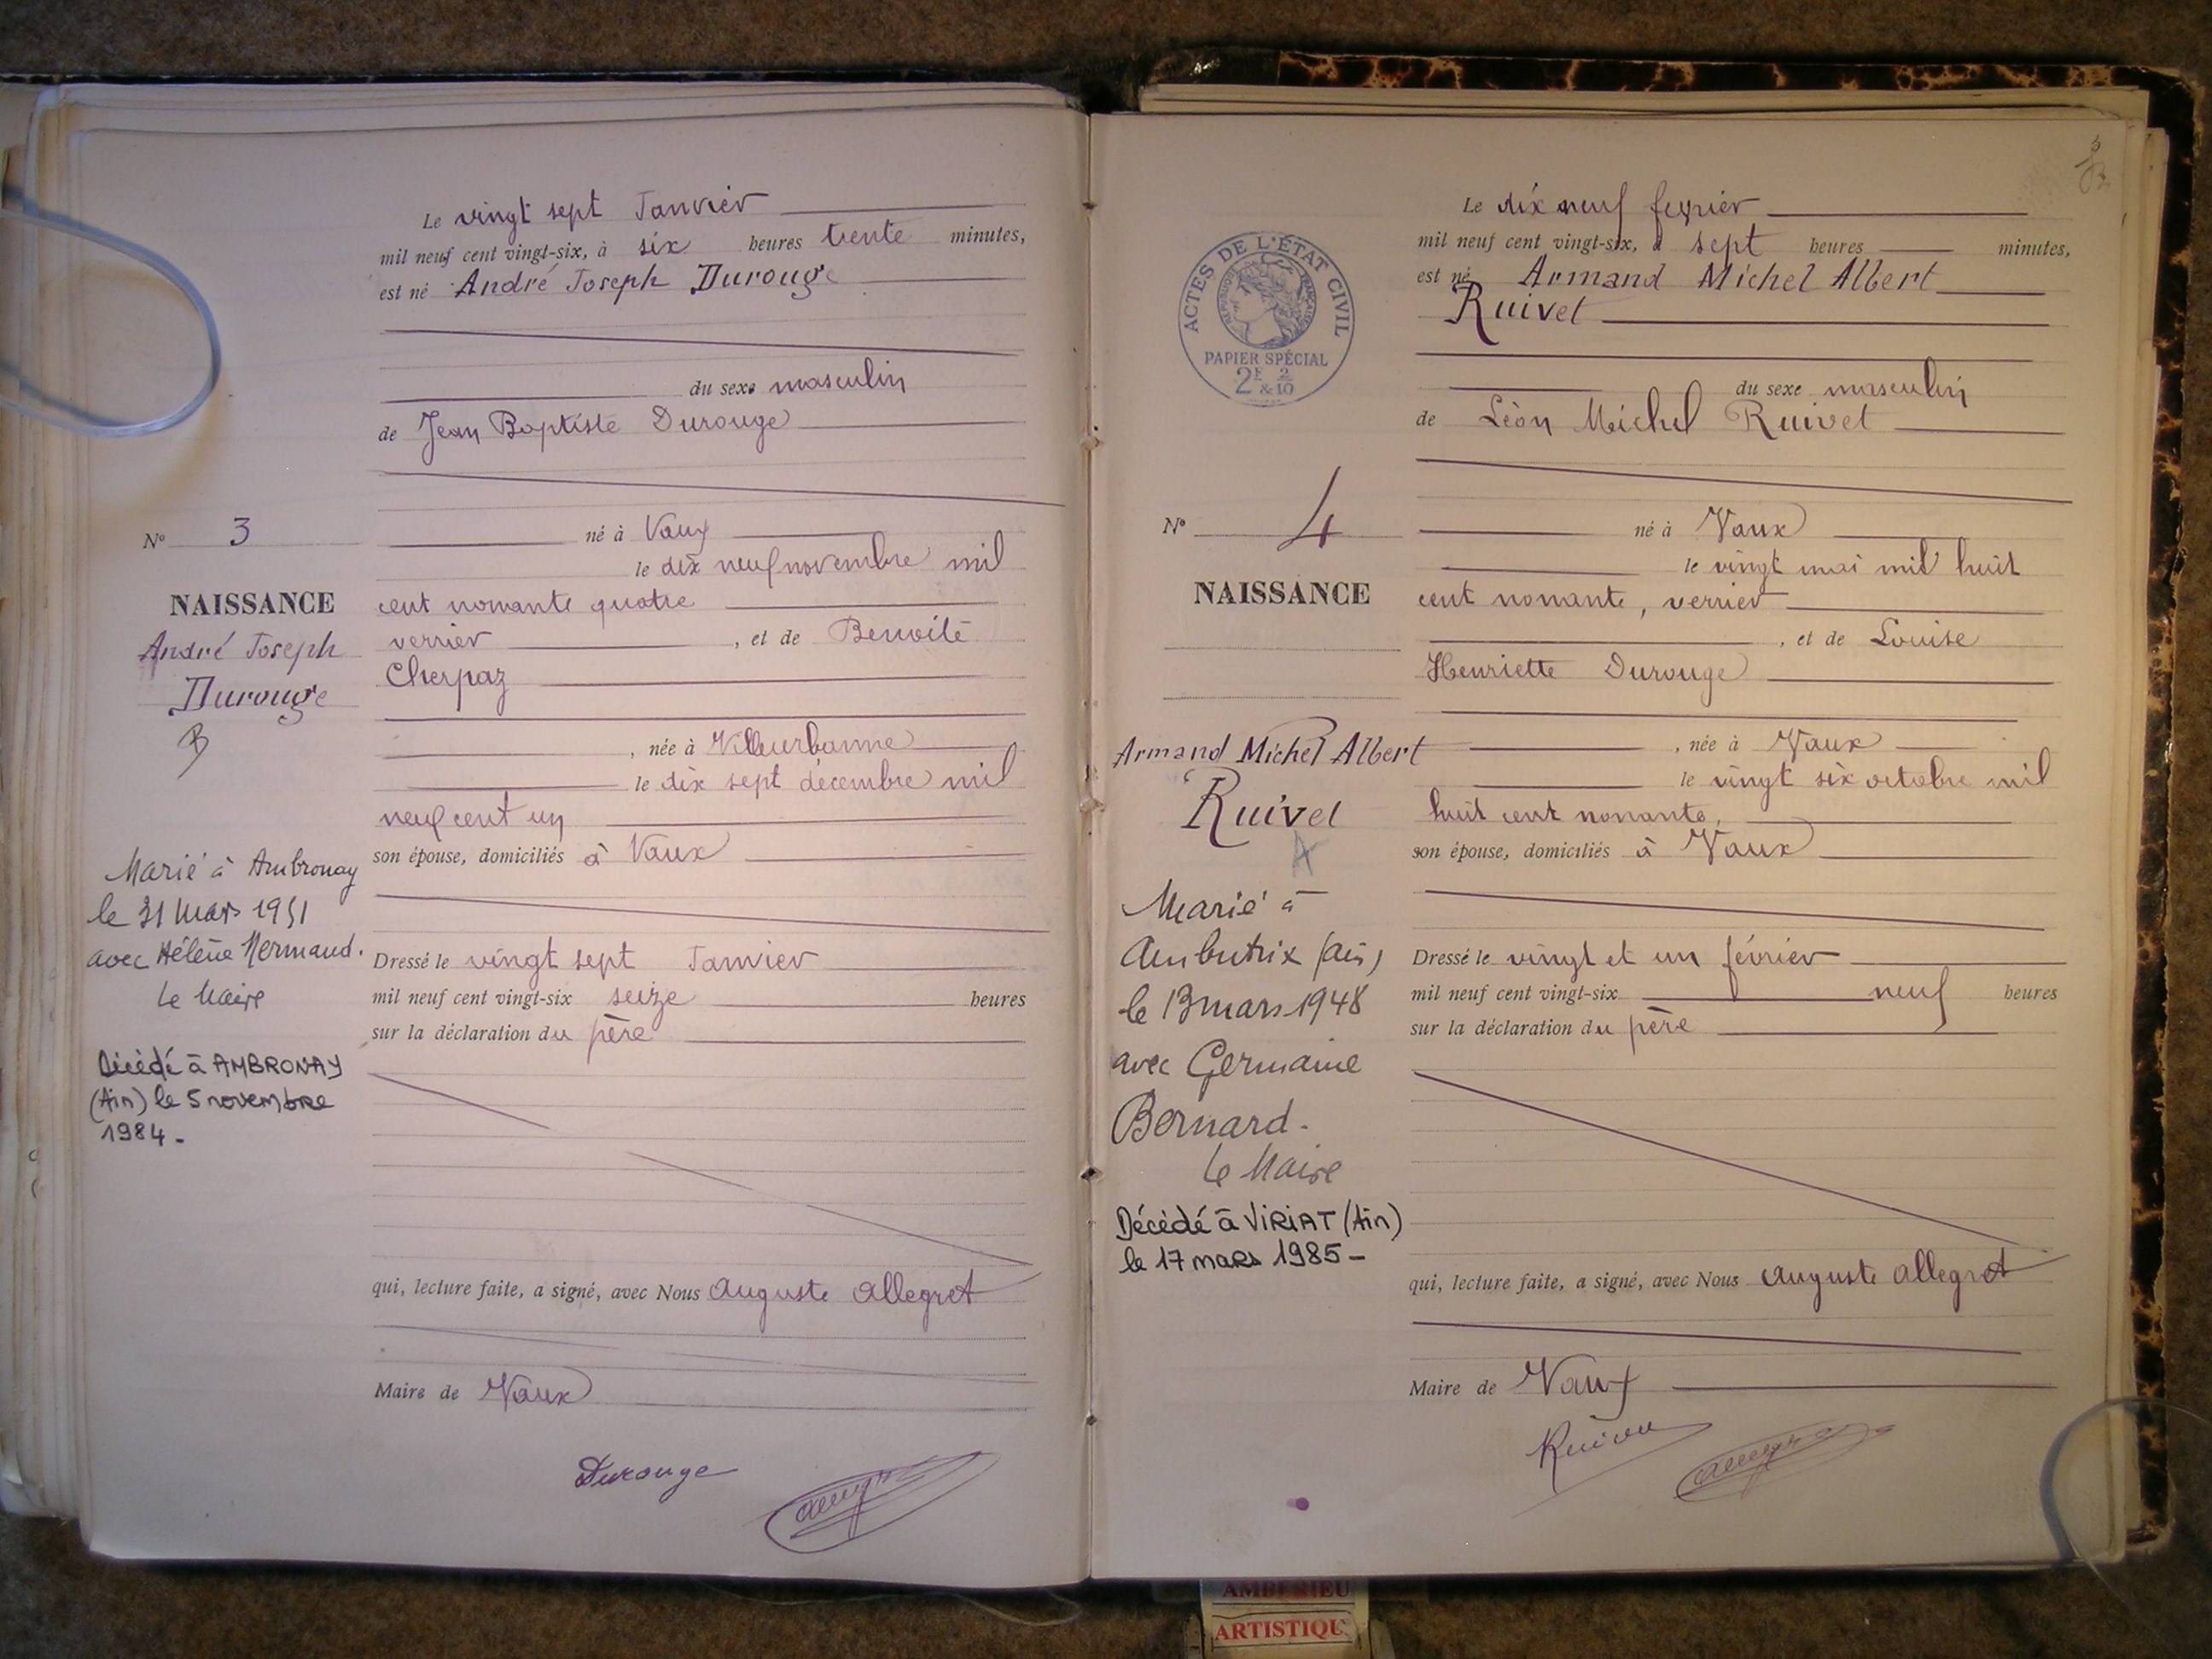 Le vingt sept Janvier
mil neuf cent vingt-six, à six heures trente minutes,
est né André Joseph Durouge
du sexe masculin
de Jean Baptiste Durouge
né à Vaux
le dix neuf novembre mil
cent nonante quatre
verrier, et de Benoite
Cherpaz
, née à Villeurbanne
le dix sept décembre mil
neuf cent un
son épouse, domiciliés à Vaux
Dressé le vingt sept Janvier
mil neuf cent vingt-six seize heures
sur la déclaration du père
qui, lecture faite, a signé, avec Nous Auguste Allegret
Maire de Vaux
Durouge
N° 3
NAISSANCE
André Joseph
Durouge
B
Marié à Ambronay
le 31 Mars 1951
avec Hélène Mermand.
Le Maire
Décédé à AMBRONAY
(Ain) le 5 novembre
1984 -
Le dix neuf février
mil neuf cent vingt-six, à sept heures minutes,
est né Armand Michel Albert
Ruivet
du sexe masculin
de Léon Michel Ruivet
né à Vaux
le vingt mai mil huit
cent nonante, verrier
, et de Louise
Henriette Durouge
, née à Vaux
le vingt six octobre mil
huit cent nonante,
son épouse, domiciliés à Vaux
Dressé le vingt et un février
mil neuf cent vingt-six neuf heures
sur la déclaration du père
qui, lecture faite, a signé, avec Nous Auguste Allegret
Maire de Vaux
ACTES DE L'ÉTAT CIVIL
RÉPUBLIQUE FRANÇAISE
PAPIER SPÉCIAL
2F 2
&10
N° 4
NAISSANCE
Armand Michel Albert
Ruivet
A
Marié à
Ambutrix (Ain)
le 13 mars 1948
avec Germaine
Bernard.
Le Maire
Décédé à VIRIAT (Ain)
le 17 mars 1985 -
AMBERIEU
ARTISTIQU